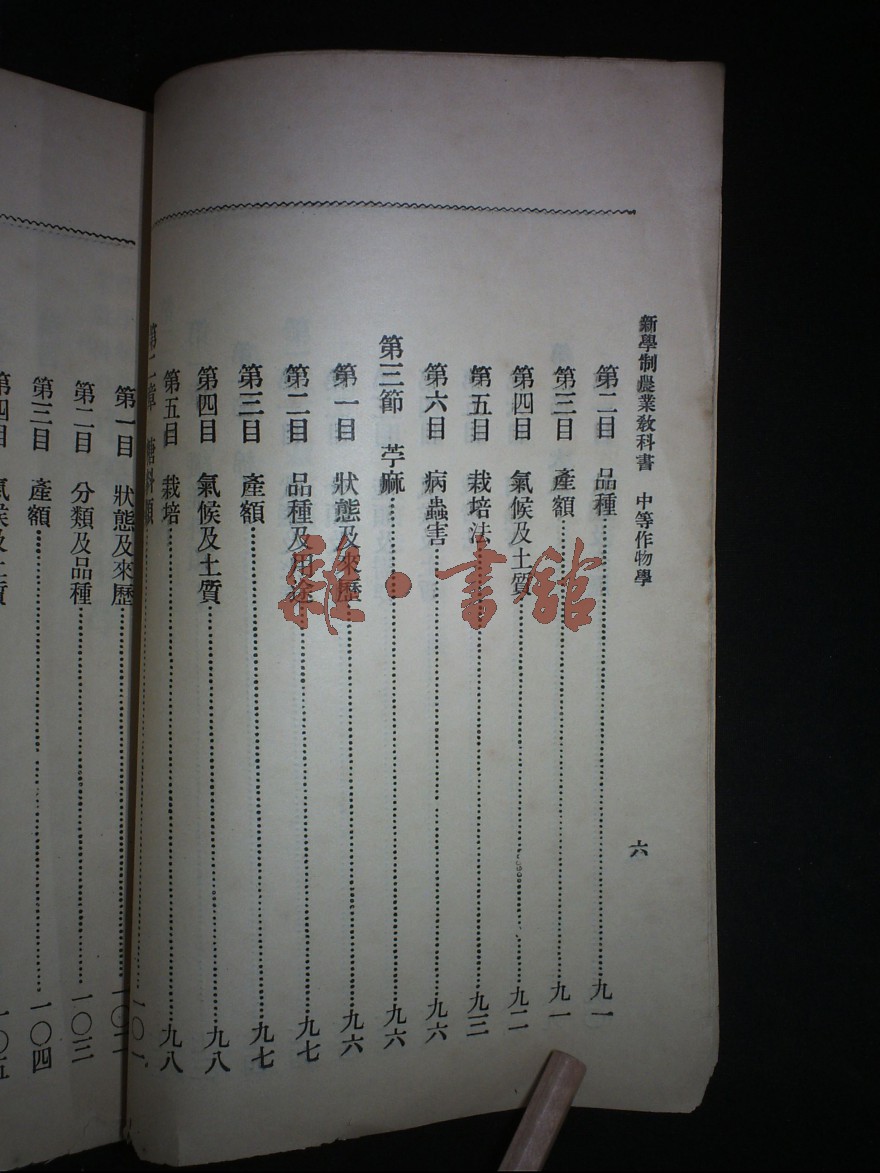 新學制農業敎科書　中等作物學
六
第二目　品種……九一
第三目　產額……九一
第四目　氣候及土質……九二
第五目　栽培法……九三
第六目　病蟲害……九六
第三節　苧麻……九六
第一目　狀態及來歷……九六
第二目　品種及用途……九七
第三目　產額……九七
第四目　氣候及土質……九八
第五目　栽培……九八
第二章　糖料類……一〇一
第一目　狀態及來歷……一〇二
第二目　分類及品種……一〇三
第三目　產額……一〇四
第四目　氣候及土質……一〇五
雜·書館